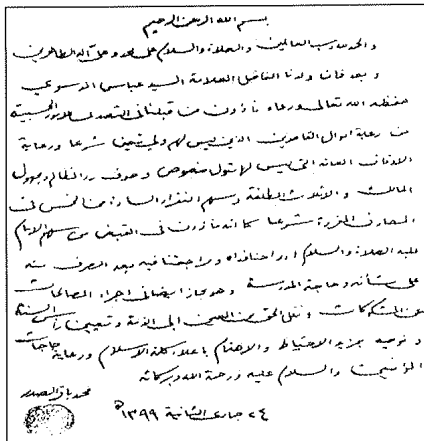 بسم الله الرحمن الرحيم
و الحمد لله رب العالمين والصلاة والسلام على محمد وعلى آله الطاهرين
و بعد فان ولدنا الفاضل العلامة السيد عباس الموسوي
حفظه الله تعالى ورعاه مأذون من قبلنا في التصدي للامور الحسبية
من رعاية اموال القاصرين الذين ليس لهم ولي متعين شرعا ورعاية
الاوقاف العامة التي ليس لها متول منصوص وصرف رد المظالم ومجهول
المالك والاثلاث المطلقة وسهم الفقراء السادة من الخمس في
المصارف المقررة شرعا كما انه مأذون في القبض من سهم الامام
عليه الصلاة والسلام ارواحنا فداه ومراجعتنا فيه بعد الصرف منه
على شأنه وحاجة المدرسة وهو مجاز ايضا في اجراء المصالحات
عن المشكوكات ونقل الحق من العين الى الذمة وتعيين رأس السنة
و نوصيه بمزيد الاحتياط والاهتمام باعلاء كلمة الاسلام ورعاية حاجات
المؤمنين والسلام عليه ورحمة الله وبركاته
محمد باقر الصدر
٢٤ جمادى الثانية ١٣٩٩ هـ